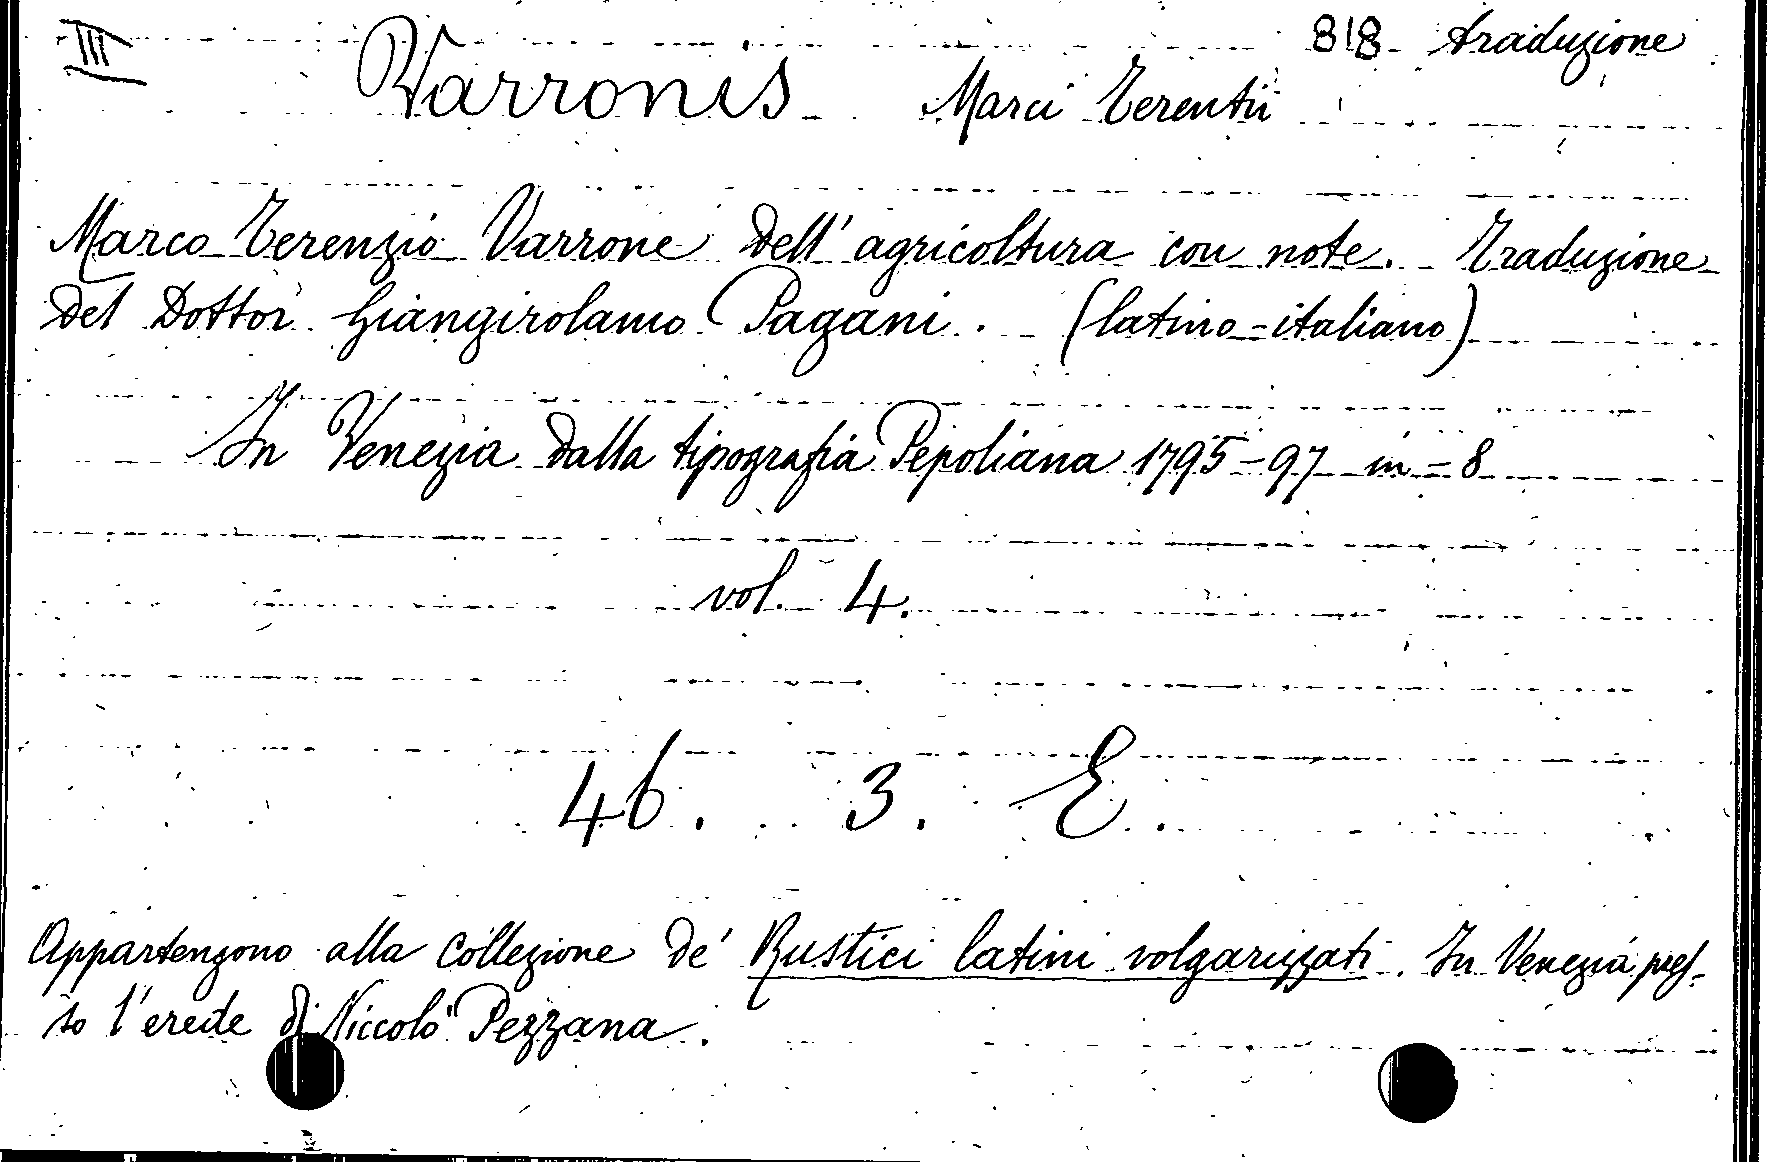 III
818 traduzione
Varronis Marci Terentii
Marco Terenzio Varrone dell' agricoltura con note. Traduzione
del Dottor Giangirolamo Pagani. (latino-italiano)
In Venezia dalla tipografia Pepoliana 1795-97 in-8
vol. 4.
46. 3. E.
Appartengono alla collezione de' Rustici latini volgarizzati. In Venezia pres-
so l'erede di Niccolo' Pezzana.